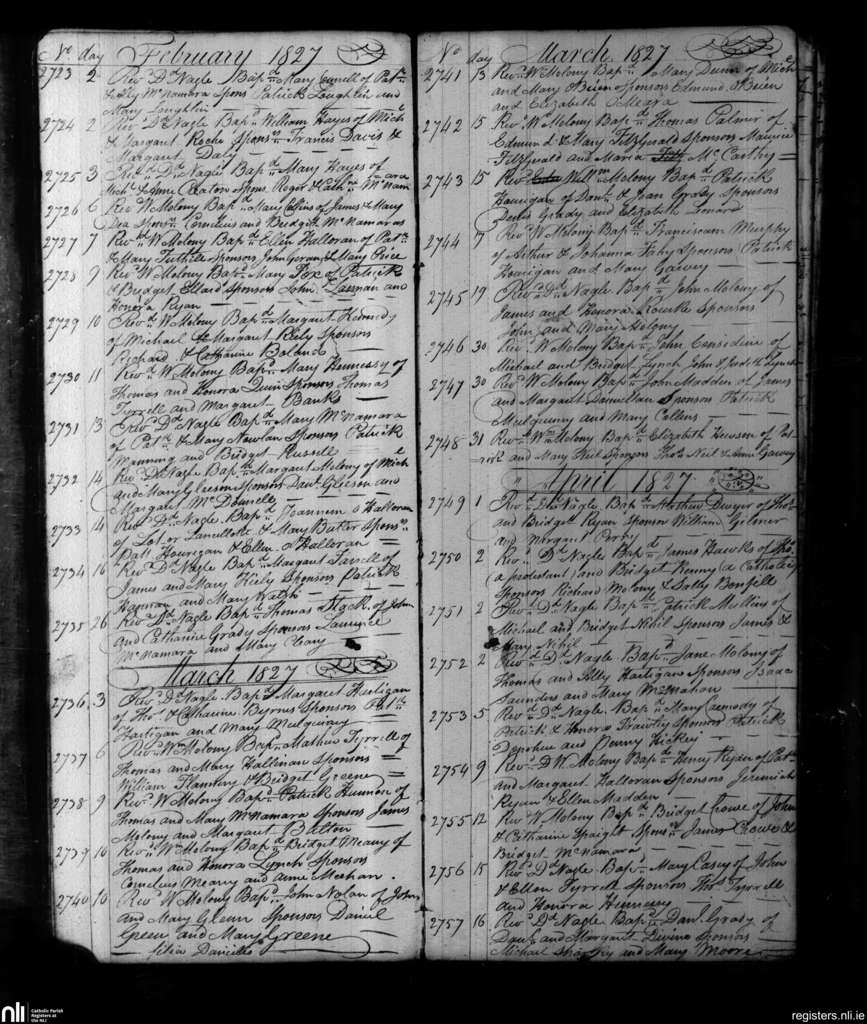 No day February 1827
2723 2 Revd Dr Nagle Bapd Mary Connell of Patk
& Ally McNamara Spons Patrick Loughlin and
Mary Loughlin
2724 2 Revd Dr Nagle Bapd William Hayes of Michl
& Margaret Roche Sponsrs Francis Davis &
Margaret Daly
2725 3 Revd Dr Nagle Bapd Mary Hayes of
Michl & Anne Sponsr Roger & Cathn McNamara
2726 6 Revd W Molony Bapd Mary Collins of James & Mary
Dea Sponsrs Cornelius and Bridget McNamaras
2727 7 Revd W Molony Bapd Ellen Halloran of Patk
& Mary Tuthill Sponsors John & Mary Price
2728 9 Revd W Molony Bapd Mary Fox of Patrick
& Bridget Sponsors John Lannan and
Honora Ryan
2729 10 Revd W Molony Bapd Margaret Kennedy
of Michael & Margaret Reily Sponsors
Richard & Catharine Boland
2730 11 Revd W Molony Bapd Mary Hennessy of
Thomas and Honora Quin Sponsors Thomas
Tyrrell and Margaret Banks
2731 13 Revd Dr Nagle Bapd Mary McNamara
of Patk & Mary Nowlan Sponsors Patrick
Manning and Bridget Russell
2732 14 Revd Dr Nagle Bapd Margaret Molony of Michl
and Mary Gleeson Sponsors Danl Gleeson and
Margaret McDonnell
2733 14 Revd Dr Nagle Bapd Joannem O Halloran
of Lot or Lancellotte & Mary Buker Sponsrs
Patt Hourigan & Ellen O Halloran
2734 16 Revd Dr Nagle Bapd Margaret Farrell of
James and Mary Kiely Sponsors Patrick
Hannan and Mary Walsh
2735 26 Revd Dr Nagle Bapd Thomas of John
and Catharine Grady Sponsors Laurence
McNamara and Mary Cleary
March 1827
2736 3 Revd Dr Nagle Bapd Margaret Hartigan
of Thos & Catharine Byrns Sponsors Patk
Hartigan and Mary Mulquiny
2737 6 Revd W Molony Bapd Mathew Tyrrell of
Thomas and Mary Hallinan Sponsors
William Flannery & Bridget Greene
2738 9 Revd W Molony Bapd Patrick Hunnon of
Thomas and Mary McNamara Sponsors James
Molony and Margaret Bulton
2739 10 Revd Wm Molony Bapd Bridget Meany of
Thomas and Honora Lynch Sponsors
Cornelius Meany and Anne Meehan.
2740 10 Revd W Molony Bapd John Nolan of John
and Mary Glenn Sponsors Daniel
Green and Mary Greene
filia Danielis
No day March 1827
2741 13 Revd W Molony Bapd Mary Dunn of Michl
and Mary OBrien Sponsors Edmund OBrien
and Elizabeth OMeara
2742 15 Revd W Molony Bapd Thomas Palmir of
Edmund & Mary Fitzgerald Sponsors Maurice
Fitzgerald and Maria McCarthy
2743 15 Revd Willm Molony Bapd Patrick
Hourigan of Danl & Jean Grady Sponsors
Denis Grady and Elizabeth Leonard
2744 17 Revd W Molony Bapd Franciscam Murphy
of Arthur & Johanna Fahy Sponsors Patrick
Hourigan and Mary Garvey
2745 19 Revd Dr Nagle Bapd John Molony of
James and Honora Rourke Sponsors
John and Mary Molony
2746 30 Revd W Molony Bapd John Considine of
Michael and Bridget Lynch John & Judith Lynch
2747 30 Revd W Molony Bapd John Madden of James
and Margaret Donnellan Sponsors Patrick
Mulqueeny and Mary Collins
2748 31 Revd Wm Molony Bapd Elizabeth Hewson of Pat-
rick and Mary Neil Sponsors Thos Neil & Anne Garvey
April 1827
2749 1 Revd Dr Nagle Bapd Mathew Dwyer of Thos
and Bridgett Ryan Sponsor William Gilmer
and Margaret Perry
2750 2 Revd Dr Nagle Bapd James Hawks of Thos
(a protestant) and Bridget Kenny (a Catholic)
Sponsors Richard Molony & Sally Bonfill
2751 2 Revd Dr Nagle Bapd Patrick Mullins of
Michael and Bridget Nihil Sponsors James &
Mary Nihil
2752 2 Revd Dr Nagle Bapd Jane Molony of
Thomas and Ally Hartigan Sponsors Isaac
Saunders and Mary McMahon
2753 5 Revd Dr Nagle Bapd Mary Carmody of
Patrick & Honora Frawley Sponsors Patrick
Donohue and Penny Hickey
2754 9 Revd D W Molony Bapd Henry Ryan of Patk
and Margaret Halloran Sponsors Jeremiah
Ryan & Ellen Madden
2755 12 Revd W Molony Bapd Bridget Crowe of John
& Catharine Spaight Sponsrs James Crowe &
Bridget McNamara
2756 15 Revd Dr Nagle Bapd Mary Casey of John
& Ellen Tyrrell Sponsors Thos Tyrrell
and Honora Hennessy
2757 16 Revd Dr Nagle Bapd Danl Grady of
Danl and Margaret Divine Sponsors
Michael Sharkey and Mary Moore
nli Catholic Parish
Registers at
the NLI
registers.nli.ie